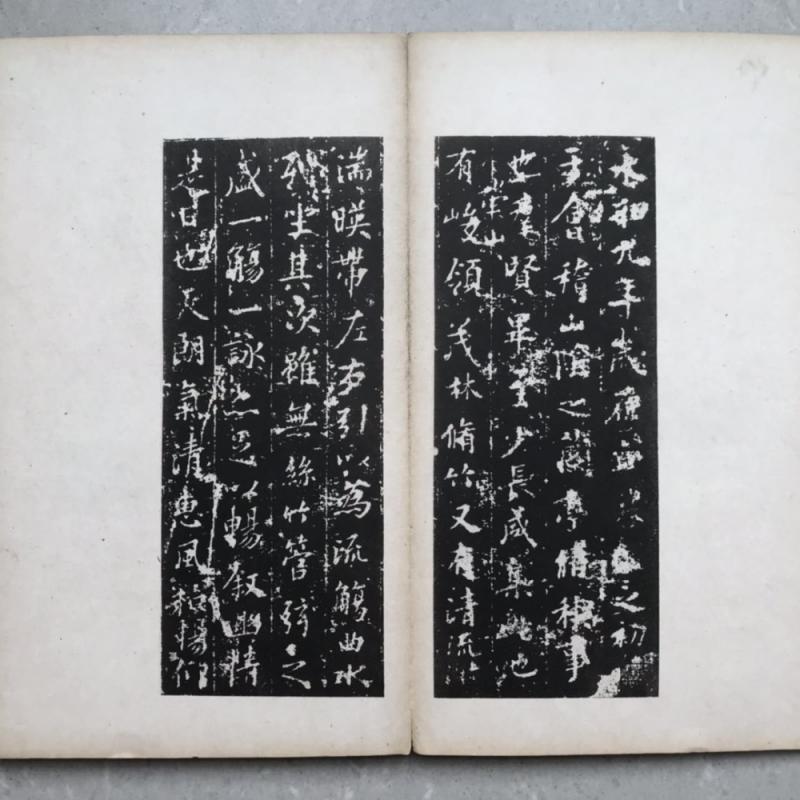 永和九年歲在之初
于會稽山陰之蘭亭脩稧事
也羣賢畢至少長咸集此地
崇山
有峻領茂林脩竹又有清流
湍暎帶左右引以為流觴曲水
列坐其次雖無絲竹管弦之
盛一觴一詠亦足以暢敘幽情
是日也天朗氣清惠風和暢仰